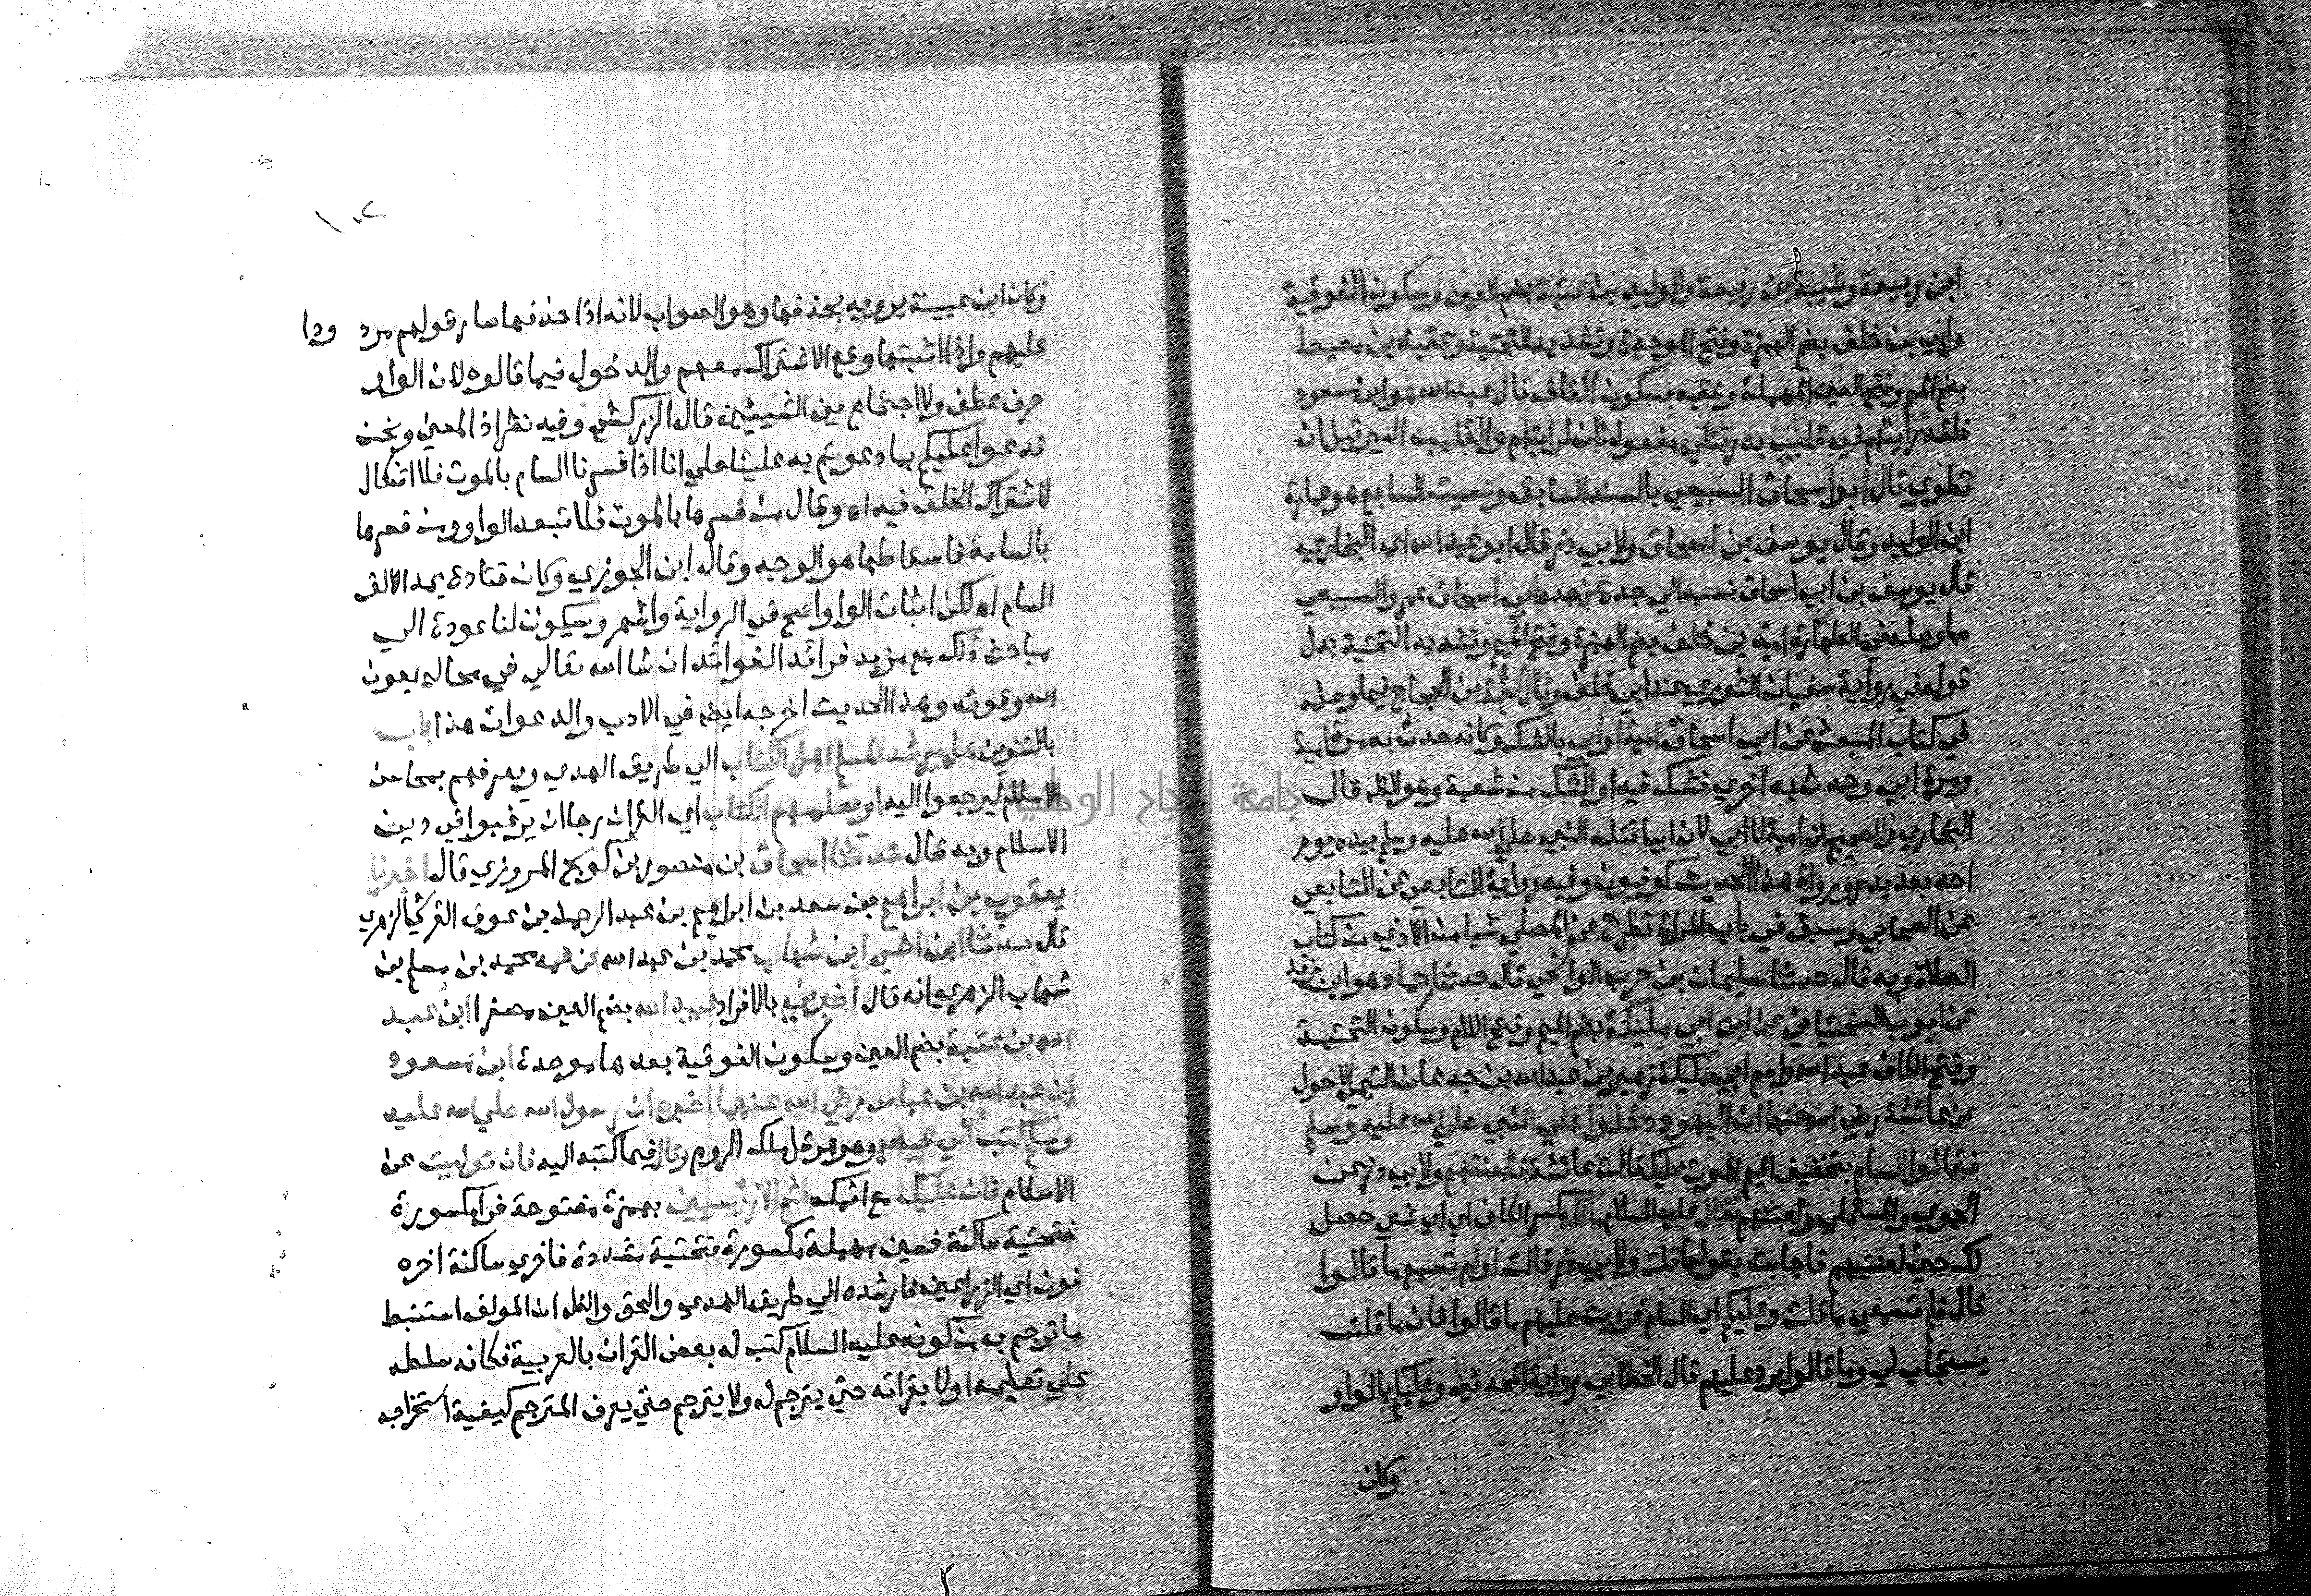 ابن ربيعة وشيبة بن ربيعة والوليد بن عتبة بضم العين وسكون الفوقية
وابي بن خلف بضم الهمزة وفتح الموحدة وتشديد التحتية وعقبة بن معيط
بضم الميم وفتح العين المهملة وعقبه بسكون القاف قال عبد الله هو ابن مسعود
فلقد رايتهم في قليب بدر قتلي مفعول ثان لرايتهم والقليب البير قبل ان
تطوي قال ابو اسحاق السبيعي بالسند السابق ونسيت السابع هو عمارة
ابن الوليد وقال يوسف بن اسحاق ولابي ذر قال ابو عبد الله اي البخاري
قال يوسف بن ابي اسحاق نسبه الي جده عن جده ابي اسحاق عمرو السبيعي
مما وصله في الطهارة امية بن خلف بضم الهمزة وفتح الميم وتشديد التحتية بدل
قوله في رواية سفيان الثوري عند ابي خلف وقال شعبة بن الحجاج فيما وصله
في كتاب المبعث عن ابي اسحاق امية او ابي بالشك وكانه حدث به مرة امية
ومرة ابي وحدث به اخري فشك فيه او الشك من شعبة وهو الظ قال
البخاري والصحيح انه امية لا ابي لان ابيا قتله النبي صلي الله عليه وسلم بيده يوم
احد بعد بدر ورواة هذا الحديث كوفيون وفيه رواية التابعي عن التابعي
عن الصحابي وسبق في باب المراة تطرح عن المصلي شيا من الاذي من كتاب
الصلاة وبه قال حدثنا سليمان بن حرب الواشحي قال حدثنا حماد هو ابن زيد
عن ايوب السختياني عن ابن ابي مليكة بضم الميم وفتح اللام وسكون التحتية
وفتح الكاف عبد الله واسم ابي مليكة زهير بن عبد الله بن جدعان التيمي الاحول
عن عائشة رضي الله عنها ان اليهود دخلوا علي النبي صلي الله عليه وسلم
فقالوا السام بتخفيف الميم الموت عليك قالت عائشة فلعنتهم ولابي ذر عن
الحموي والمستملي ولعنتهم فقال عليه السلام مالك بكسر الكاف اي اي شي حصل
لك حتي لعنتيهم فاجابت بقولها قلت ولابي ذر قالت اولم تسمع ما قالوا
قال فلم تسمعي ما قلت وعليكم اي السام فرديت عليهم ما قالوا فان ما قلت
يستجاب لي وما قالوا يرد عليهم قال الخطابي رواية المحدثين وعليكم بالواو
وكان
١٠٢
وكان ابن عيينة يرويه بحذفها وهو الصواب لانه اذا حذفها صار قولهم مردودا
عليهم واذا اثبتها وقع الاشتراك معهم والدخول فيما قالوه لان الواو
حرف عطف ولا اجتماع بين الشيئين قال الزركشي وفيه نظر اذ المعني ونحن
ندعوا عليكم بما دعوتم به علينا علي انا اذا فسرنا السام بالموت فلا اشكال
لاشتراك الخلق فيه اه وقال من فسرها بالموت فلا تبعد الواو ومن فسرها
بالسامة فاسقاطها هو الوجه وقال ابن الجوزي وكان قتادة يمد الالف
السام اه لكن اثبات الواو اصح في الرواية واشهر وسيكون لنا عودة الي
مباحث ذلك مع مزيد فرائد الفوائد ان شا الله تعالي في محاله بعون
الله وقوته وهذا الحديث اخرجه ايضا في الادب والدعوات هذا باب
بالتنوين هل يرشد المسلم اهل الكتاب الي طريق الهدي ويعرفهم بمحاسن
الاسلام ليرجعوا اليه او يعلمهم الكتاب اي القران رجا ان يرغبوا في دين
الاسلام وبه قال حدثنا اسحاق بن منصور بن كوسج المروزي قال اخبرنا
يعقوب بن ابراهيم بن سعد بن ابراهيم بن عبد الرحمن بن عوف القرشي الزهري
قال حدثنا ابن اخي ابن شهاب محمد بن عبد الله عن عمه محمد بن مسلم بن
شهاب الزهري انه قال اخبرني بالافراد عبيد الله بضم العين مصغرا ابن عبد
الله بن عتبة بضم العين وسكون الفوقية بعدها موحدة ابن مسعود
ان عبد الله بن عباس رضي الله عنهما اخبره ان رسول الله صلي الله عليه
وسلم كتب الي قيصر وهو هرقل ملك الروم وقال فيما كتبه اليه فان توليت عن
الاسلام فان عليك مع اثمك اثم الاريسيين بهمزة مفتوحة فرا مكسورة
فتحتية ساكنة فسين مهملة مكسورة فتحتية مشددة فاخري ساكنة اخره
نون اي الزراعين فارشده الي طريق الهدي والحق والظ ان المولف استنبط
ما ترجم به من كونه عليه السلام كتب له بعض القران بالعربية فكانه سلطه
علي تعليمه اولا بقراته حتي يترجم له ولا يترجم حتي يعرف المترجم كيفية استخراجه
جامعة النجاح الوطنية